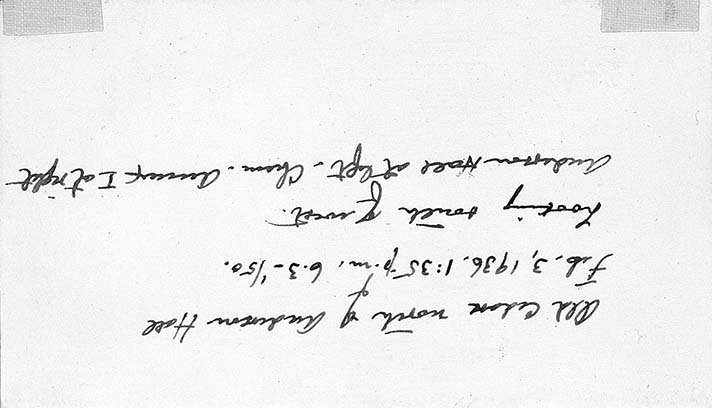 Old Cedar north of Anderson Hall
Feb. 3, 1936. 1:35 p.m. 6.3 - 1/50.
Looking south of west.
Anderson Hall at left - Chem. Annex I at right